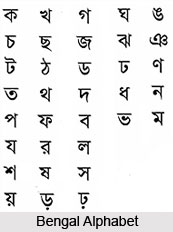 ক খ গ ঘ ঙ
চ ছ জ ঝ ঞ
ট ঠ ড ঢ ণ
ত থ দ ধ ন
প ফ ব ভ ম
য র ল
শ ষ স
য় ড় ঢ়
Bengal Alphabet